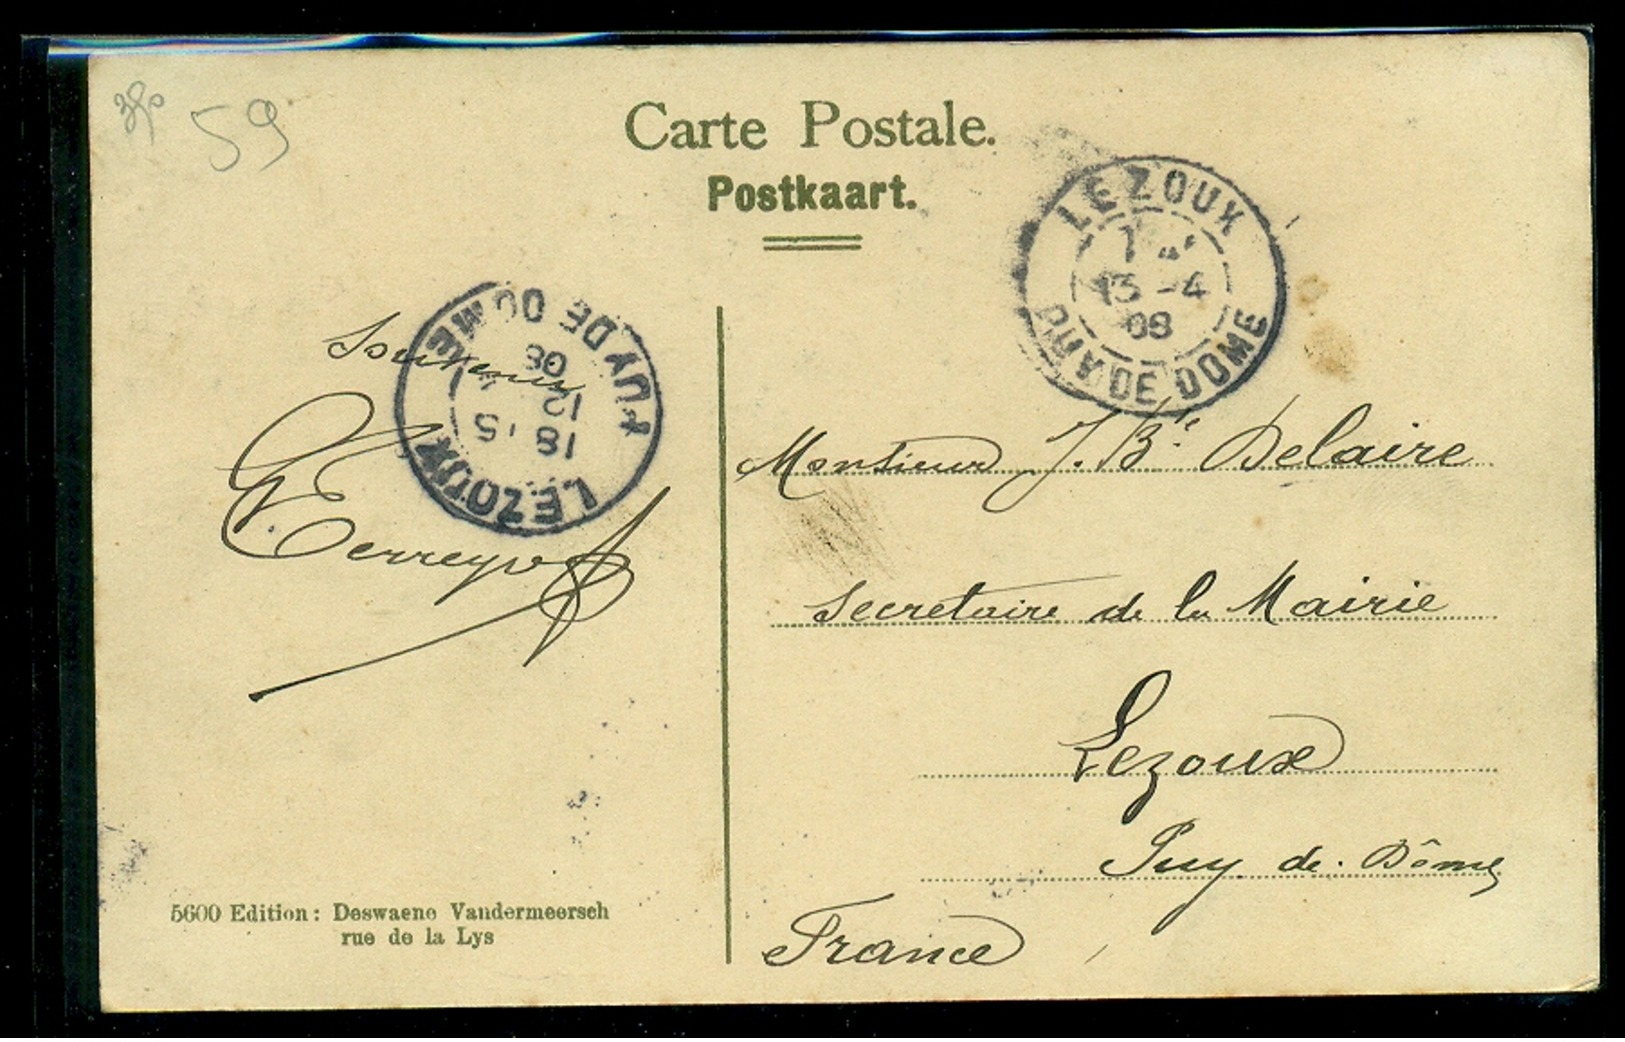 59
Carte Postale.
Postkaart.
LEZOUX
13 -4
08
PUY DE DOME
LEZOUX
18 15
12
08
PUY DE DOME
Souvenir
Monsieur J. Bte Delaire
Secretaire de la Mairie
Lezoux
Puy-de-Dôme
France
5600 Edition: Deswaene Vandermeersch
rue de la Lys